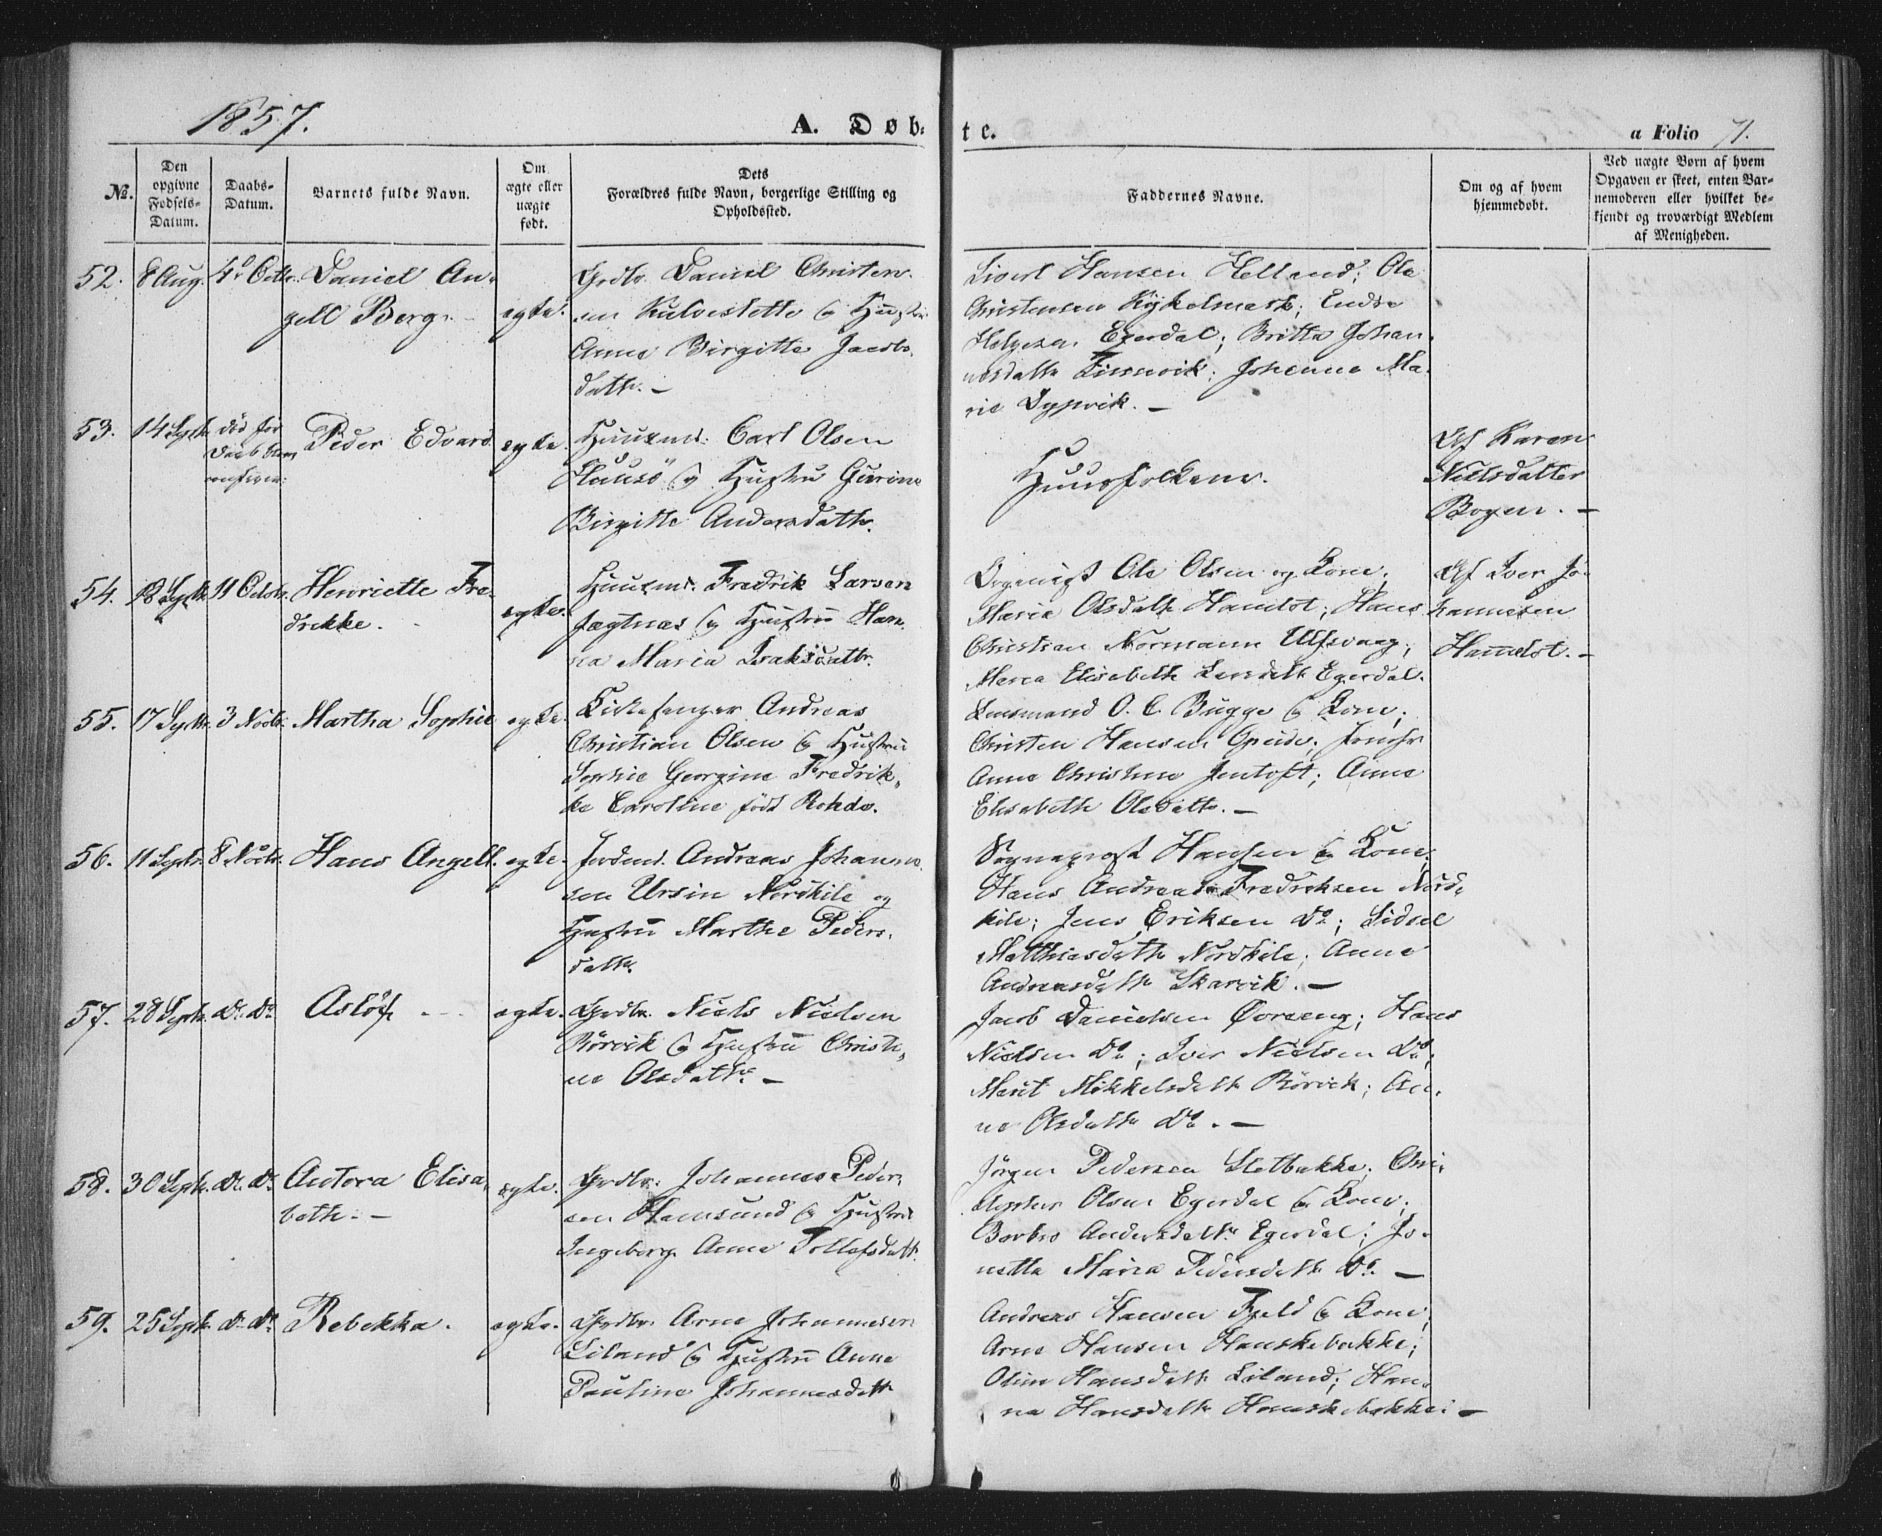 1857.
A. Døb-
te.
a Folio 71.
№.
Den opgivne Fødsels-Datum.
Daabs-Datum.
Barnets fulde Navn.
Om ægte eller uægte født.
Dets
Forældres fulde Navn, borgerlige Stilling og
Opholdssted.
Faddernes Navne.
Om og af hvem
hjemmedøbt.
Ved uægte Børn af hvem
Opgaven er skeet, enten Bar-
nemoderen eller hvilket be-
kjendt og troværdigt Medlem
af Menigheden.
52. 8 Aug. 4de Octbr. Daniel An-
gell Berg.
egte.
Grdbr. Daniel Christen-
sen Kulvestette og Hustru
Anne Birgitte Jacobs-
datter. —
Sivert Hansen Helland; Ole
Christensen Rykelmark; Endre
Helgesen Egerdal; Britta Johan-
nesdattr Finnvik; Johanna Ma-
rie Dypvik. —
53. 14 Septr. død før
Daab
Peder Edvard
egte.
Huusmd. Carl Olsen
og Hustru Gurine
Birgitte Andersdattr.
Huusfolkene.
Af Karen
Nielsdatter
Bogen. —
54. 18 Septr. 11 Octobr. Henriette Fre-
drikke.
egte.
Huusmd. Fredrik Larsen
Jægtnæs og Hustru Han-
na Maria Isaksdattr.
Ole Olsen og Kone;
Maria Olsdattr Hamlot; Hans
Christian Normann Ulfsvaag;
Maria Elisabeth Larsdattr Egerdal.
Af Iver Jo-
hannesen
Hamlot. —
55. 17 Septr. 3 Novbr. Martha Sophie
egte.
Kirkesanger Andreas
Christian Olsen og Hustru
Sophie Georgine Fredrik-
ke Caroline født Rohde.
Lensmand O. C. Bugge og Kone;
Christen Hansen
Anne Christine Jentoft; Anne
Elisabeth Olsdattr. —
56. 11 Septr. 8 Novbr. Hans Angell.
egte.
Andreas Johanne-
sen Ursin Nordkile og
Hustru Marthe Peders-
dattr.
Sogneprest Hansen og Kone;
Hans Andreas Fredriksen Nord-
kile; Jens Eriksen Do; Sidsel
Matthiasdattr Nordkile; Anne
Andreasdattr Skarvik. —
57. 28 Septr. do. do. Asløf
egte.
Grdbr. Niels Nielsen
Rørvik og Hustru Christi-
ne Olsdattr. —
Jacob Danielsen Øvreeng; Hans
Nielsen Do; Iver Nielsen Do;
Marit Mikkelsdattr Rørvik; An-
ne Olsdattr Do. —
58. 30 Septr. do. do. Antora Elisa-
beth. —
egte.
Grdbr. Johannes Peder-
sen Hamsund og Hustru
Ingeborg Anne Tollefsdattr.
Jørgen Pedersen Slotbakke; Chri-
stopher Olsen Egerdal og Kone;
Barbro Andersdattr Egerdal; Jo-
netta Maria Pedersdattr Do. —
59. 25 Septr. do. do. Rebekka.
egte.
Grdbr. Arne Johannesen
Liland og Hustru Anne
Pauline Johannesdattr
Andreas Hansen Fjeld og Kone;
Arne Hansen Hanskebakke;
Oline Hansdattr Liland; Han-
na Hansdattr Hanskebakke. —